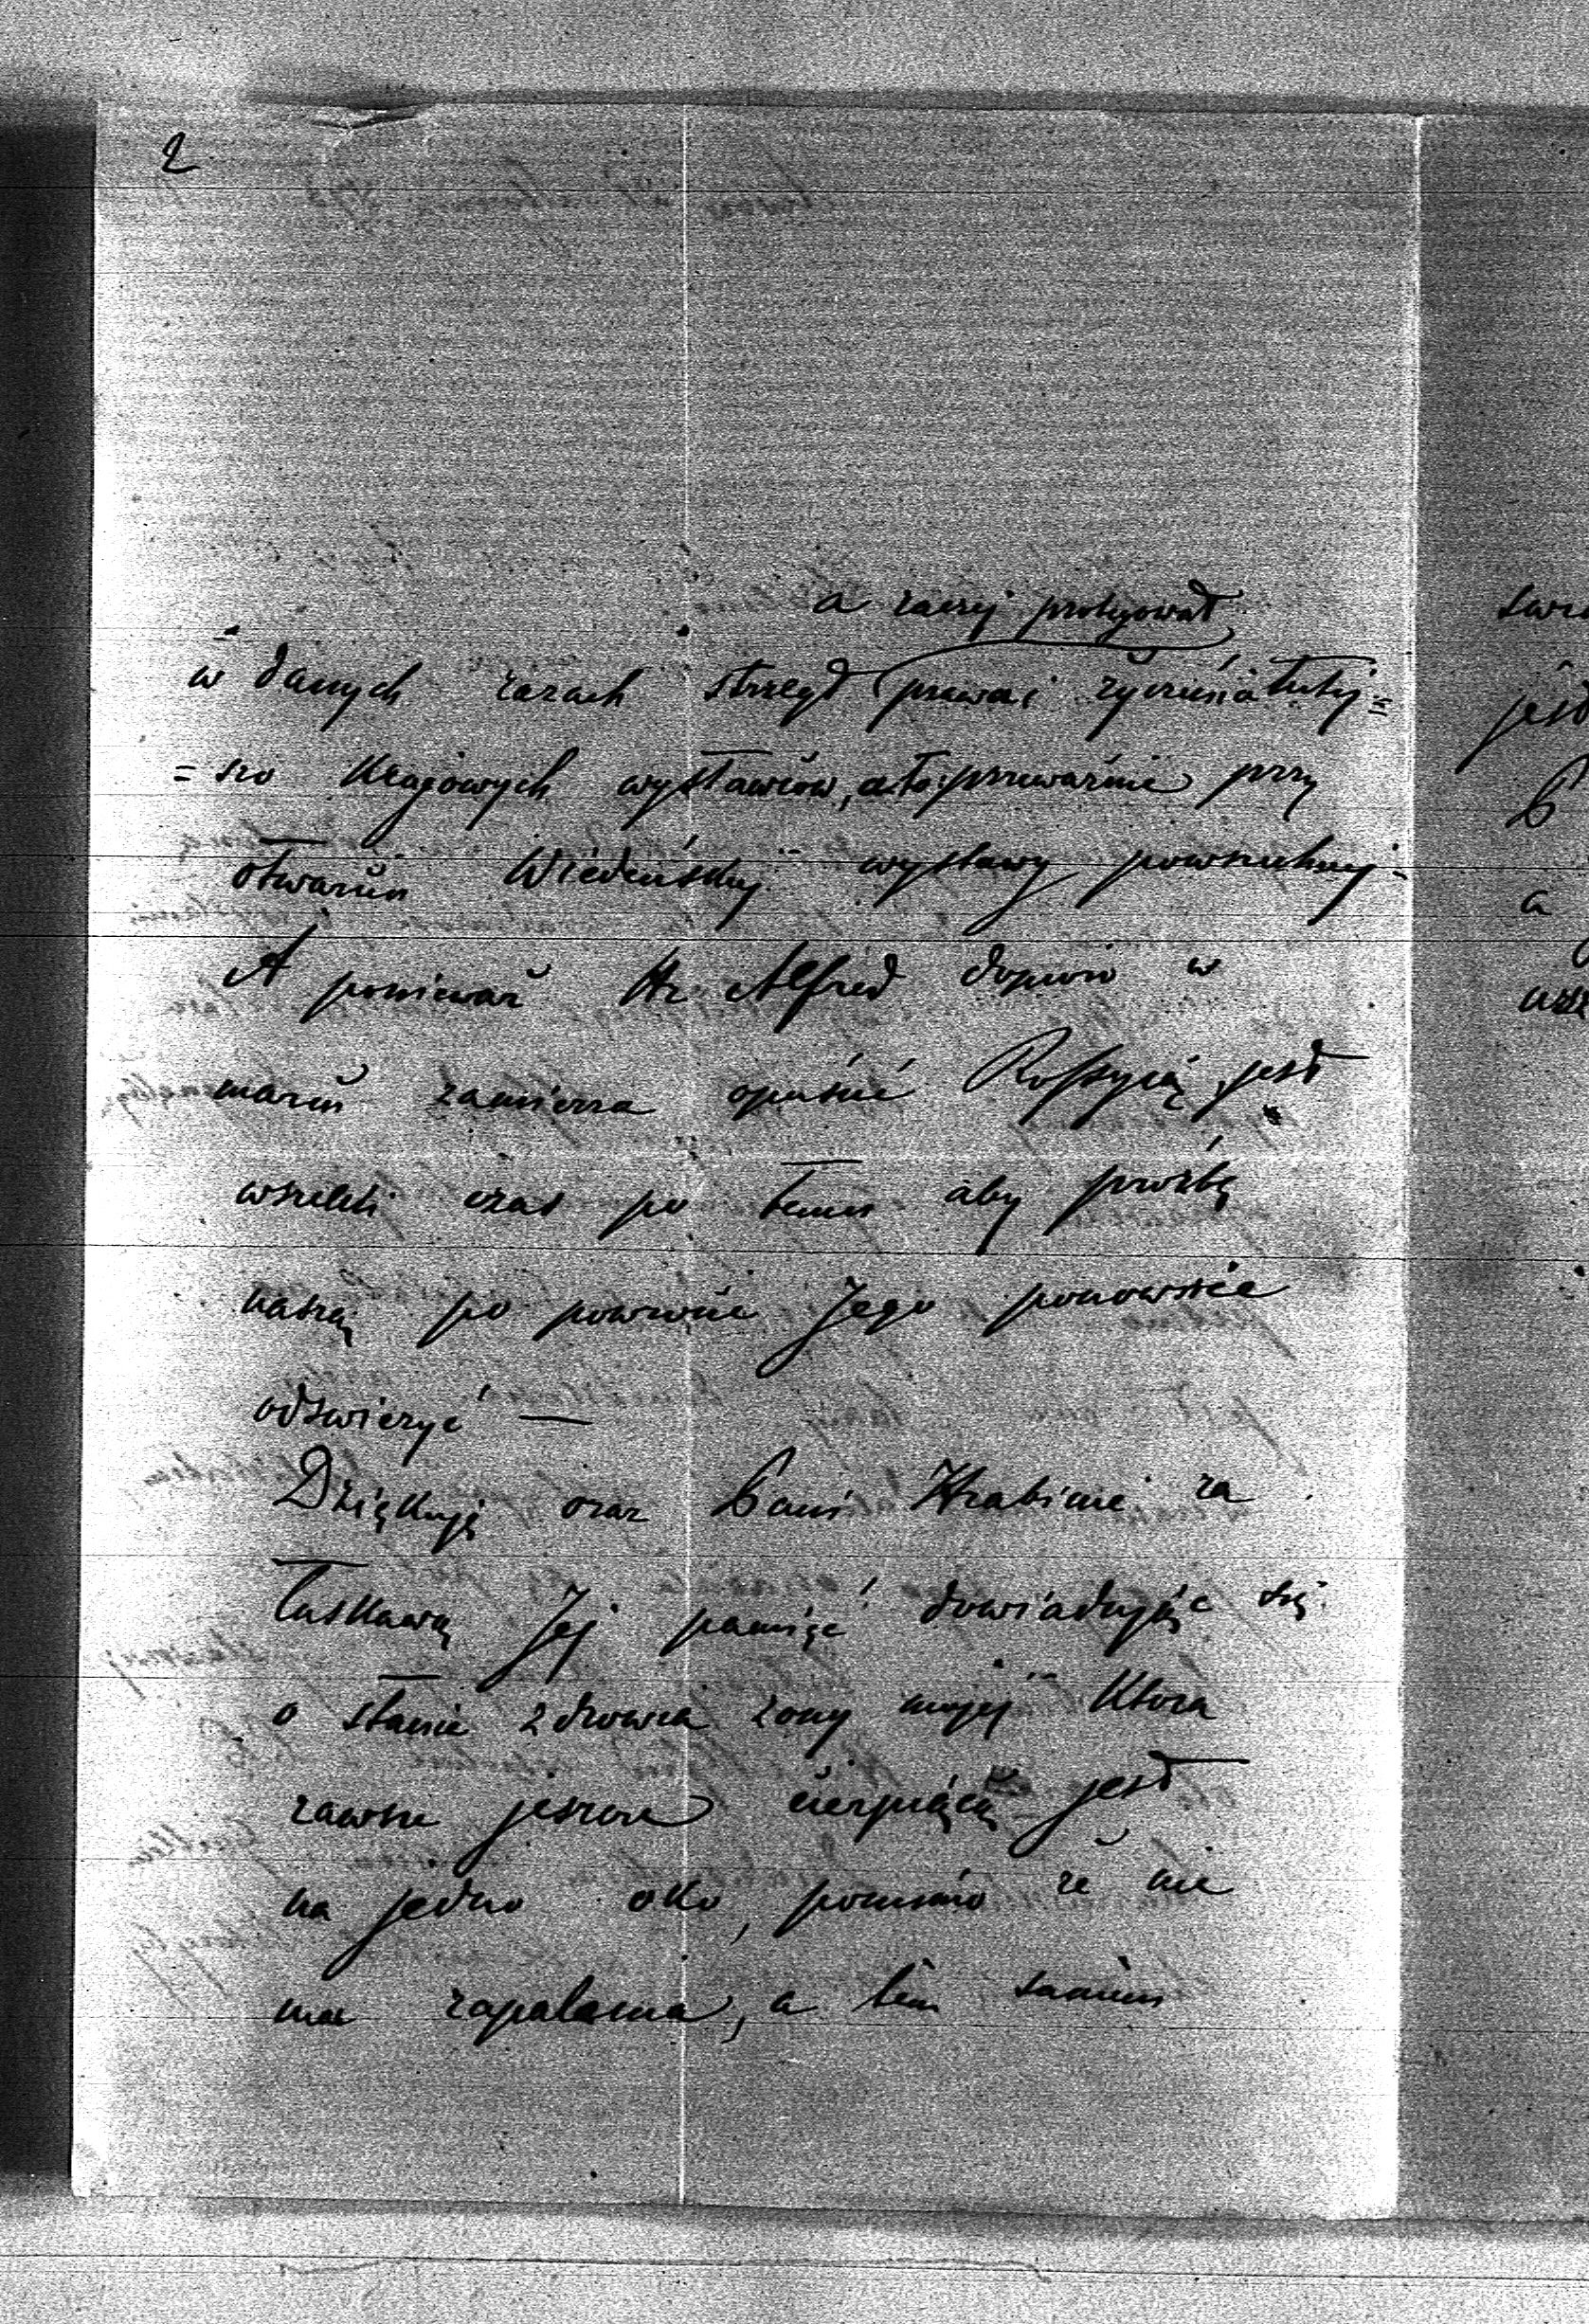 2
a raczej protegował
w danych razach strzegł prawa i życzenia tutej=
=szo krajowych wystawców, a to: przeważnie przy
otwarciu Wiedeńskiej wystawy powszechnej -
A ponieważ Hr. Alfred dopiero w
marcu zamierza opuścić Rossyią, jest
wszelki czas po temu aby prośbę
naszą po powrocie Jego ponownie
odswieżyć —
Dziękuję oraz Pani Hrabinie za
łaskawą Jej pamięć dowiadując się
o stanie zdrowia żony mojej ktora
zawsze jeszcze cierpiącą jest
na jedno oko, pomimo że nie
ma zapalenia, a tém samém
jest
P
a